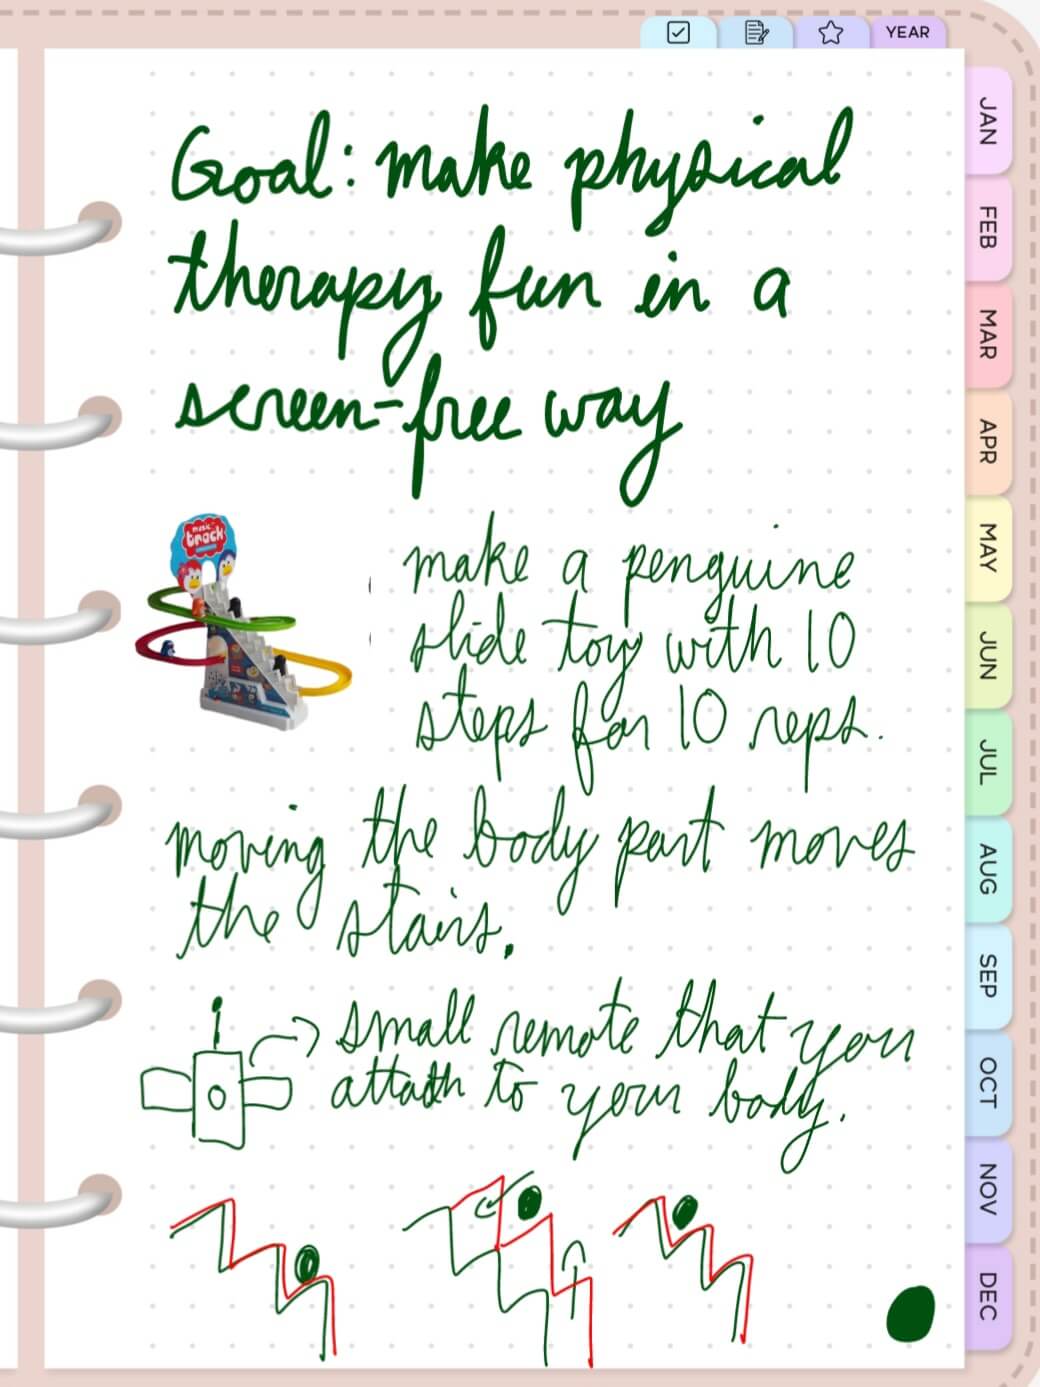 YEAR
JAN
FEB
MAR
APR
MAY
JUN
JUL
AUG
SEP
OCT
NOV
DEC
Goal: make physical
therapy fun in a
screen-free way
music
track
make a penguine
slide toy with 10
steps for 10 reps.
moving the body part moves
the stairs.
small remote that you
attach to your body.